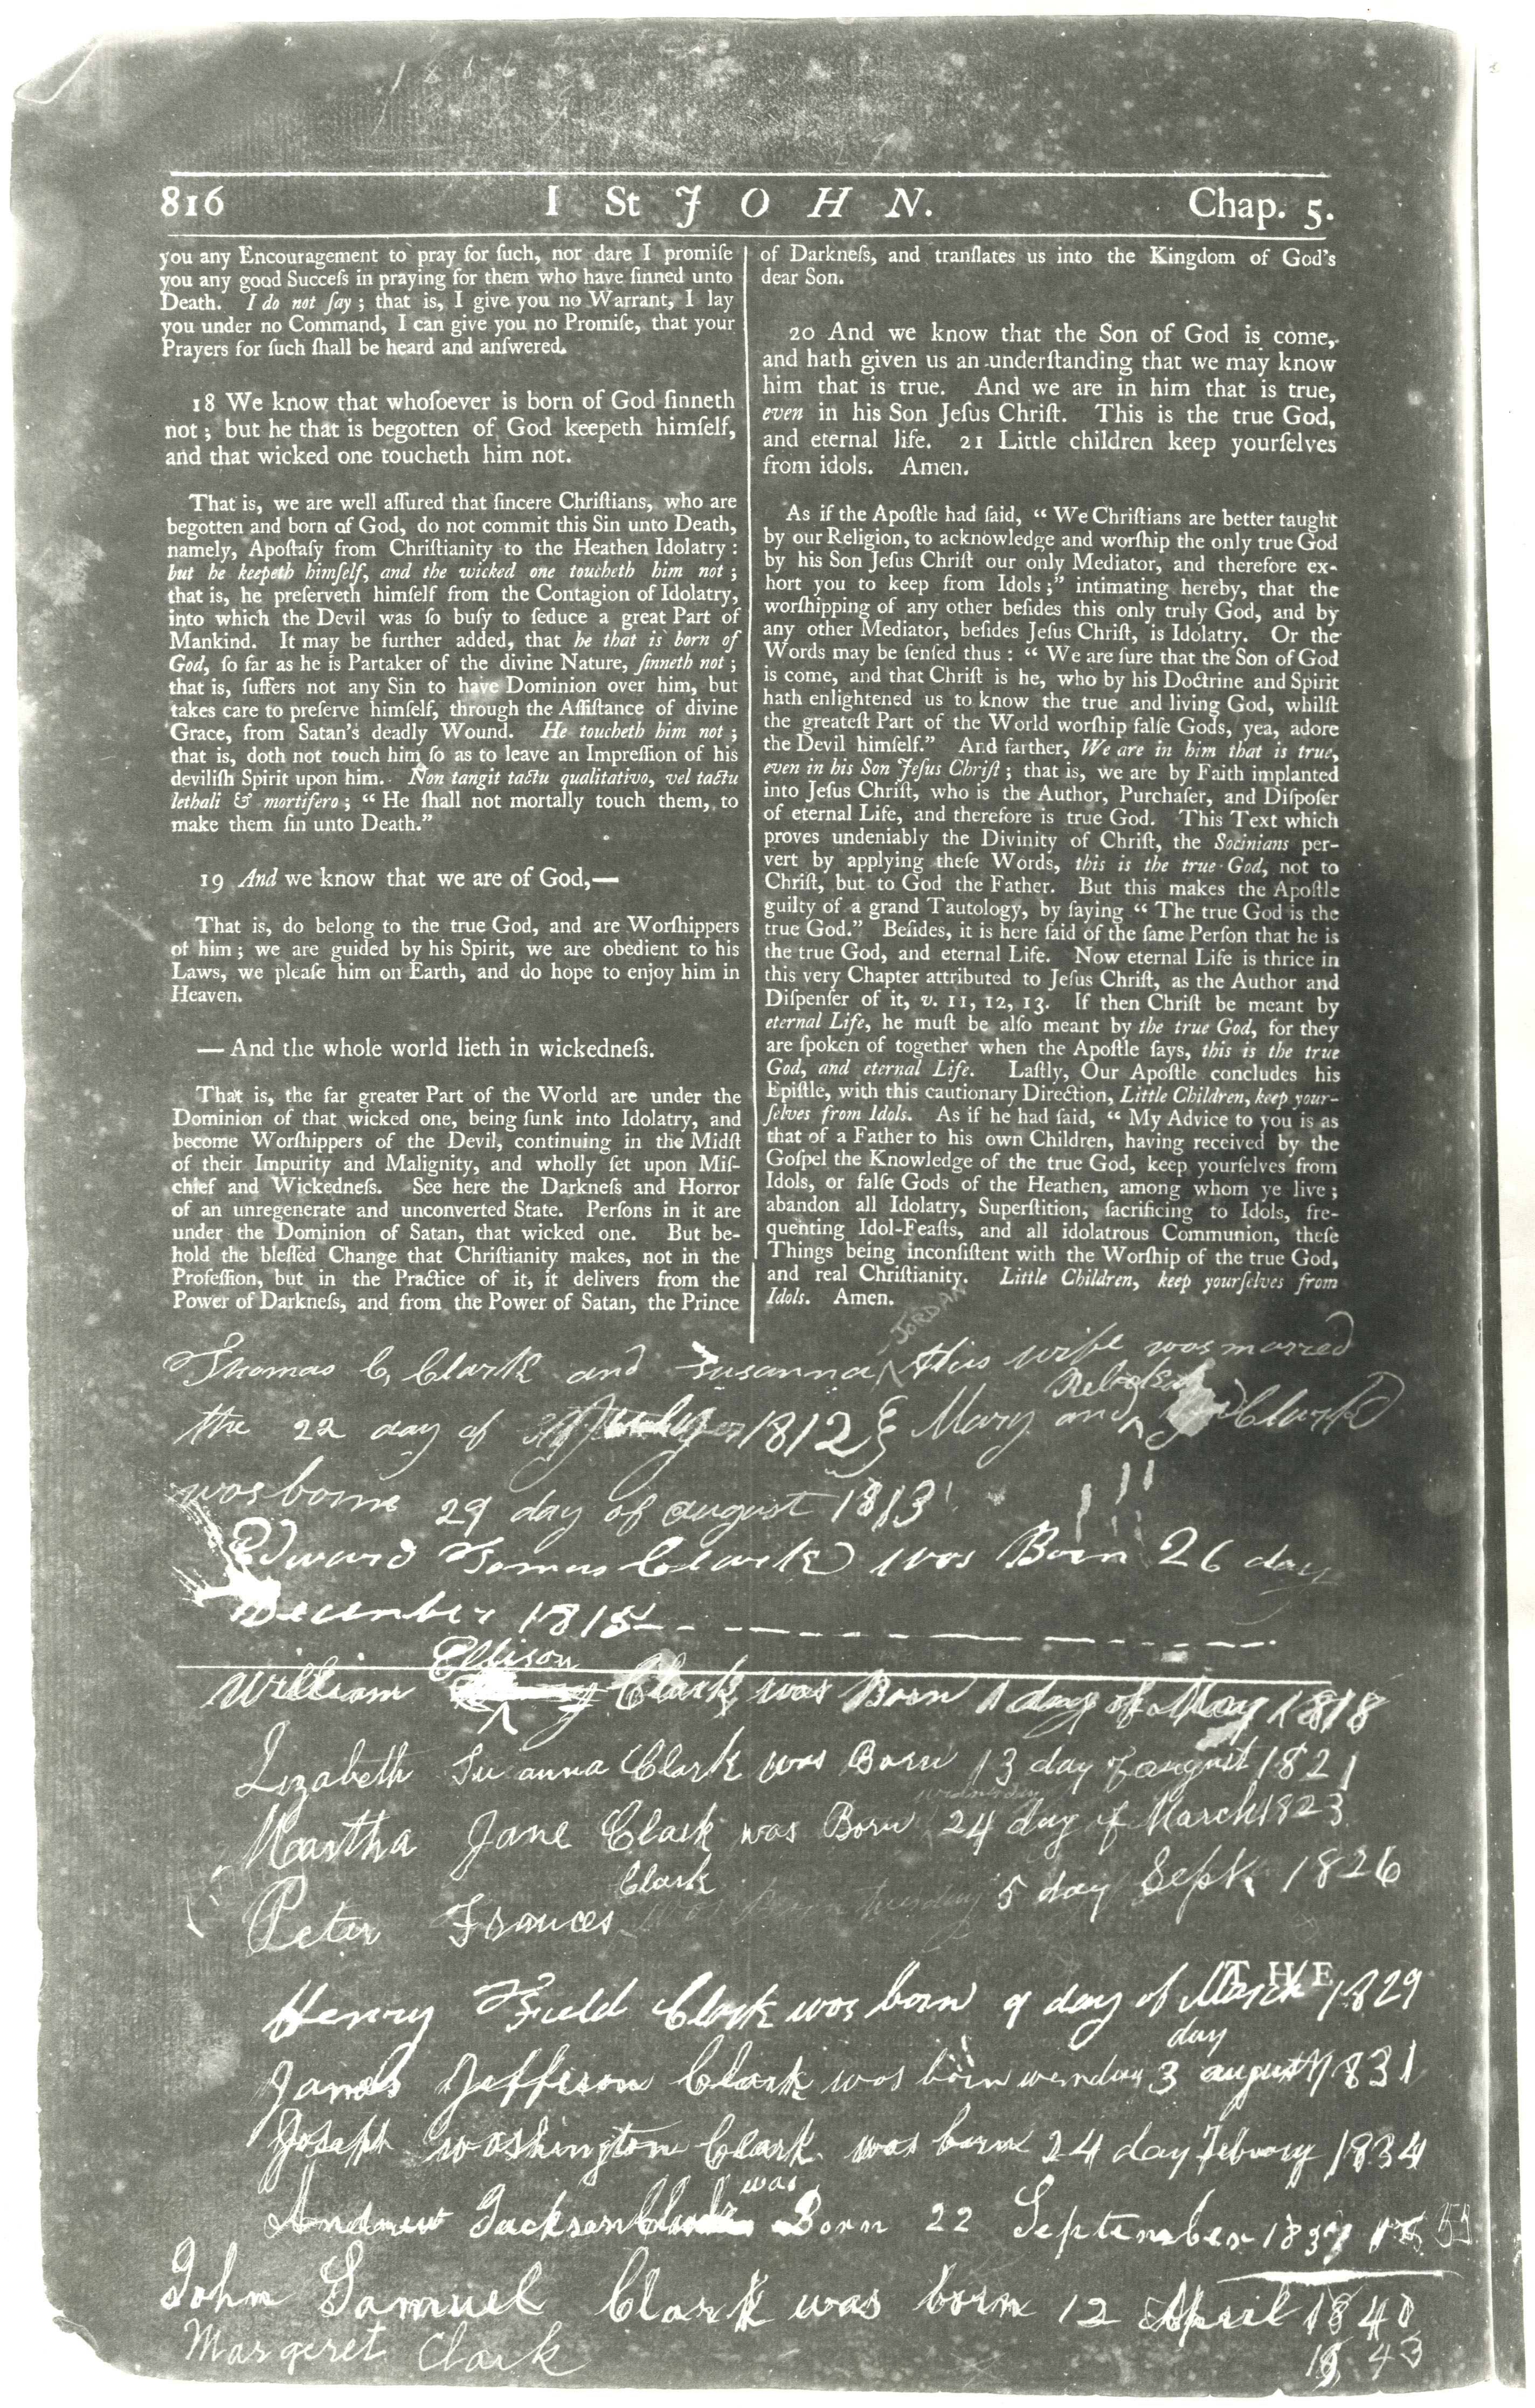 816 I St JOHN. Chap. 5.
you any Encouragement to pray for ſuch, nor dare I promiſe
you any good Succeſs in praying for them who have ſinned unto
Death. I do not ſay; that is, I give you no Warrant, I lay
you under no Command, I can give you no Promiſe, that your
Prayers for ſuch ſhall be heard and anſwered.
18 We know that whoſoever is born of God ſinneth
not; but he that is begotten of God keepeth himſelf,
and that wicked one toucheth him not.
That is, we are well aſſured that ſincere Chriſtians, who are
begotten and born of God, do not commit this Sin unto Death,
namely, Apoſtaſy from Chriſtianity to the Heathen Idolatry:
but he keepeth himſelf, and the wicked one toucheth him not;
that is, he preſerveth himſelf from the Contagion of Idolatry,
into which the Devil was ſo buſy to ſeduce a great Part of
Mankind. It may be further added, that he that is born of
God, ſo far as he is Partaker of the divine Nature, ſinneth not;
that is, ſuffers not any Sin to have Dominion over him, but
takes care to preſerve himſelf, through the Aſſiſtance of divine
Grace, from Satan's deadly Wound. He toucheth him not;
that is, doth not touch him ſo as to leave an Impreſſion of his
deviliſh Spirit upon him. Non tangit tactu qualitativo, vel tactu
lethali & mortifero; “ He ſhall not mortally touch them, to
make them ſin unto Death.”
19 And we know that we are of God,—
That is, do belong to the true God, and are Worſhippers
of him; we are guided by his Spirit, we are obedient to his
Laws, we pleaſe him on Earth, and do hope to enjoy him in
Heaven.
— And the whole world lieth in wickedneſs.
That is, the far greater Part of the World are under the
Dominion of that wicked one, being ſunk into Idolatry, and
become Worſhippers of the Devil, continuing in the Midſt
of their Impurity and Malignity, and wholly ſet upon Miſ-
chief and Wickedneſs. See here the Darkneſs and Horror
of an unregenerate and unconverted State. Perſons in it are
under the Dominion of Satan, that wicked one. But be-
hold the bleſſed Change that Chriſtianity makes, not in the
Profeſſion, but in the Practice of it, it delivers from the
Power of Darkneſs, and from the Power of Satan, the Prince
of Darkneſs, and tranſlates us into the Kingdom of God's
dear Son.
20 And we know that the Son of God is come,
and hath given us an underſtanding that we may know
him that is true. And we are in him that is true,
even in his Son Jeſus Chriſt. This is the true God,
and eternal life. 21 Little children keep yourſelves
from idols. Amen.
As if the Apoſtle had ſaid, “ We Chriſtians are better taught
by our Religion, to acknowledge and worſhip the only true God
by his Son Jeſus Chriſt our only Mediator, and therefore ex-
hort you to keep from Idols;” intimating hereby, that the
worſhipping of any other beſides this only truly God, and by
any other Mediator, beſides Jeſus Chriſt, is Idolatry. Or the
Words may be ſenſed thus: “ We are ſure that the Son of God
is come, and that Chriſt is he, who by his Doctrine and Spirit
hath enlightened us to know the true and living God, whilſt
the greateſt Part of the World worſhip falſe Gods, yea, adore
the Devil himſelf.” And farther, We are in him that is true,
even in his Son Jeſus Chriſt; that is, we are by Faith implanted
into Jeſus Chriſt, who is the Author, Purchaſer, and Diſpoſer
of eternal Life, and therefore is true God. This Text which
proves undeniably the Divinity of Chriſt, the Socinians per-
vert by applying theſe Words, this is the true God, not to
Chriſt, but to God the Father. But this makes the Apoſtle
guilty of a grand Tautology, by ſaying “ The true God is the
true God.” Beſides, it is here ſaid of the ſame Perſon that he is
the true God, and eternal Life. Now eternal Life is thrice in
this very Chapter attributed to Jeſus Chriſt, as the Author and
Diſpenſer of it, v. 11, 12, 13. If then Chriſt be meant by
eternal Life, he muſt be alſo meant by the true God, for they
are ſpoken of together when the Apoſtle ſays, this is the true
God, and eternal Life. Laſtly, Our Apoſtle concludes his
Epiſtle, with this cautionary Direction, Little Children, keep your-
ſelves from Idols. As if he had ſaid, “ My Advice to you is as
that of a Father to his own Children, having received by the
Goſpel the Knowledge of the true God, keep yourſelves from
Idols, or falſe Gods of the Heathen, among whom ye live;
abandon all Idolatry, Superſtition, ſacrificing to Idols, fre-
quenting Idol-Feaſts, and all idolatrous Communion, theſe
Things being inconſiſtent with the Worſhip of the true God,
and real Chriſtianity. Little Children, keep yourſelves from
Idols. Amen.
JORDAN
Thomas C Clark and Susanna this wife was marred
the 22 day of 1812 } Mary and Clark
was borne 29 day of august 1813
Edward Tomas Clark was Born 26 day
December 1815
Ellison
William Clark was Born 1 day of May 1818
Lizabeth Su anna Clark was Born 13 day of august 1821
Martha Jane Clark was Born 24 day of March 1823
Clark
Peter Frances was Born tuesday 5 day Sept. 1826
THE
Henry Field Clark was born 9 day of March 1829
day
James Jefferson Clark was born wenday 3 august 1831
Joseph washington Clark was born 24 day Febuary 1834
was
Andrew Jackson Clark Born 22 September 1837
John Samuel Clark was born 12 April 1840
Margeret Clark 1843